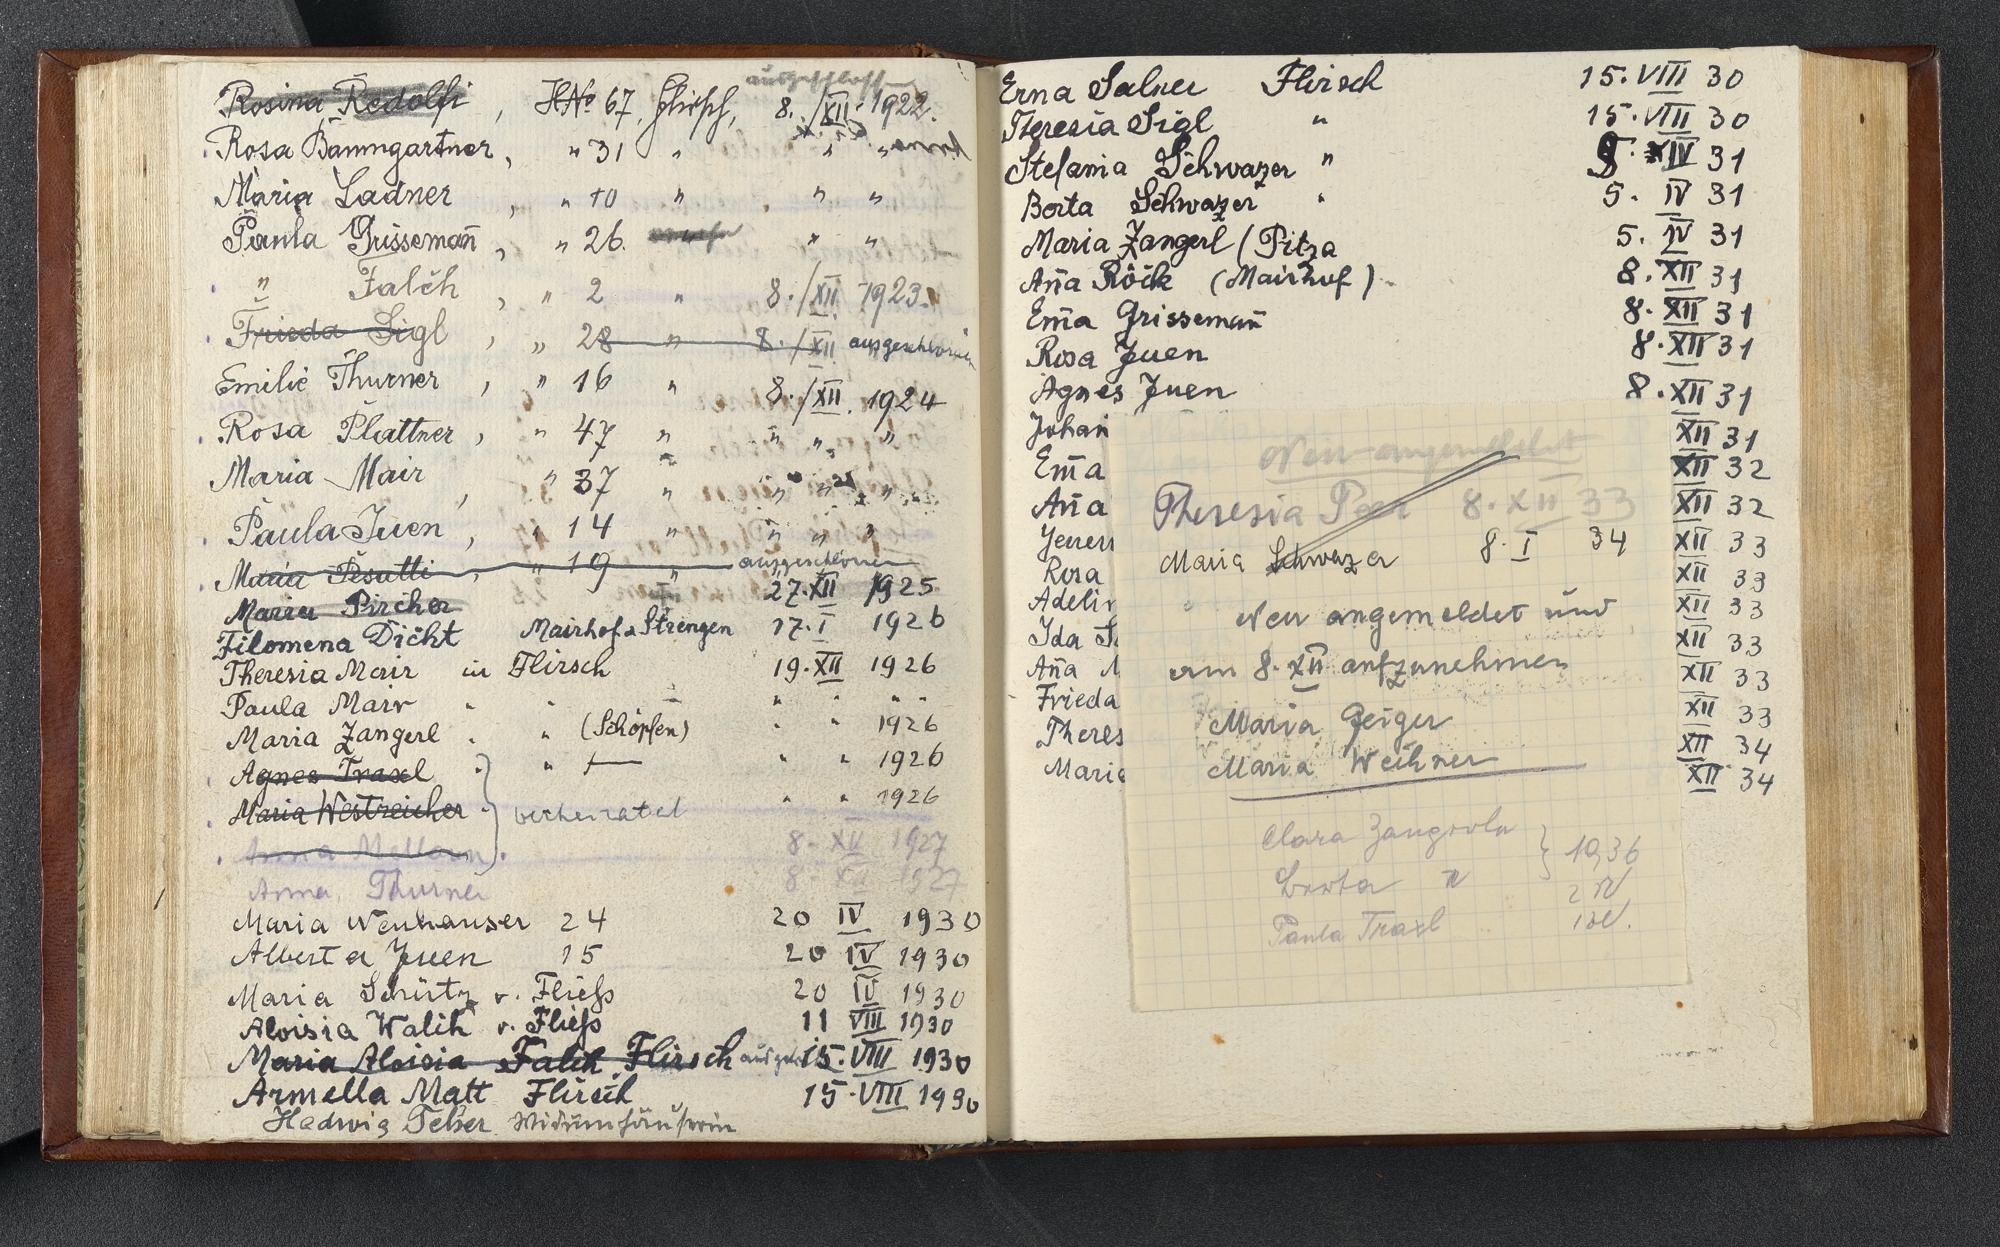 ausgeschlossen
Rosina Redolfi, HNo 67, Flirsch, 8./XII. 1922.
Rosa Baumgartner, " 31 " " "
Maria Ladner, " 10 " " "
Paula Grissemann̄, " 26. " " "
" Falch, " 2 " 8./XII. 1923.
Frieda Sigl, " 28 " 8./XII. ausgeschlossen
Emilie Thurner, " 16 " 8./XII. 1924
Rosa Plattner, " 47 " " " "
Maria Mair, " 37 " " " "
Paula Juen, " 14 " " " "
Maria Pesutti, " 19 " ausgeschlossen
Maria Pircher 27. XII 1925
Filomena Dicht Mairhof Strengen 17. I 1926
Theresia Mair in Flirsch 19. XII 1926
Paula Mair " " " " "
Maria Zangerl " " (Schöpfen) " " 1926
Agnes Traxl " " " " 1926
Maria Westreicher " verheiratet " " 1926
Anna 8. XII 1927
Anna Thurner 8. XII 1927
Maria Neuhauser 24 20 IV 1930
Alberta Juen 15 20 IV 1930
Maria Schütz v. Fließ 20 IV 1930
Aloisia Walch v. Fließ 11 VIII 1930
Maria Aloisia Falch Flirsch 15. VIII 1930
Armella Matt Flirsch 15. VIII 1930
Hedwig Widumhäuserin
Erna Salner Flirsch 15. VIII 30
Theresia Sigl " 15. VIII 30
Stefania Schwazer " IV 31
Berta Schwazer " 5. IV 31
Maria Zangerl (Pitza 5. IV 31
Am̄a Röck (Mairhof) 8. XII 31
Em̄a Grisseman̄ 8. XII 31
Rosa Juen 8. XII 31
Agnes Juen 8. XII 31
Johan XII 31
Em̄a XII 32
An̄a XII 32
XII 33
Rosa XII 33
Adelin XII 33
Ida XII 33
An̄a M XII 33
Frieda XII 33
Theres XII 34
Maria XII 34
Neu angemeldet
Theresia 8. XII 33
Maria Schwazer 8. I 34
Neu angemeldet und
am 8. XII aufzunehmen
Maria Geiger
Maria Weihner
Clara } 10,36
Berta "
Paula Traxl